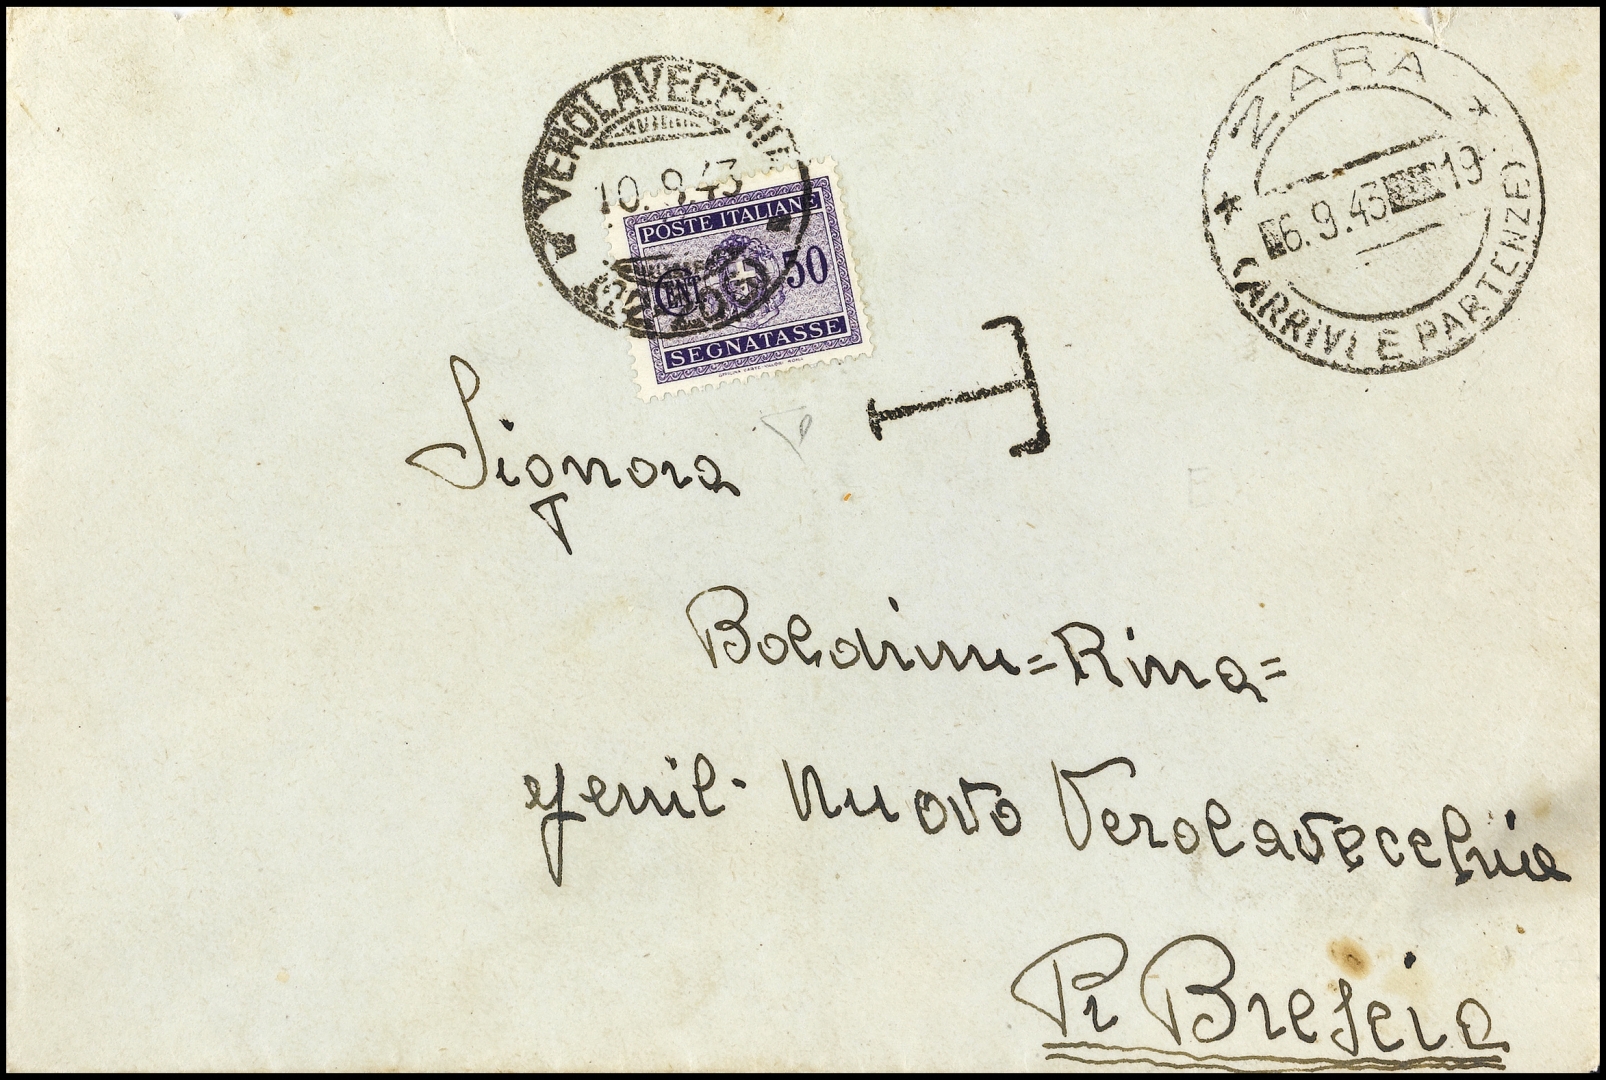 VEROLAVECCHIA
10.9.43
(BRESCIA)
POSTE ITALIANE
CENT 50
SEGNATASSE
OFFICINA CARTE-VALORI ROMA
ZARA
6.9.43 19
(ARRIVI E PARTENZE)
T
Signora
Boldrini=Rina=
Fenil. Nuovo Verolavecchia
Pr Brescia